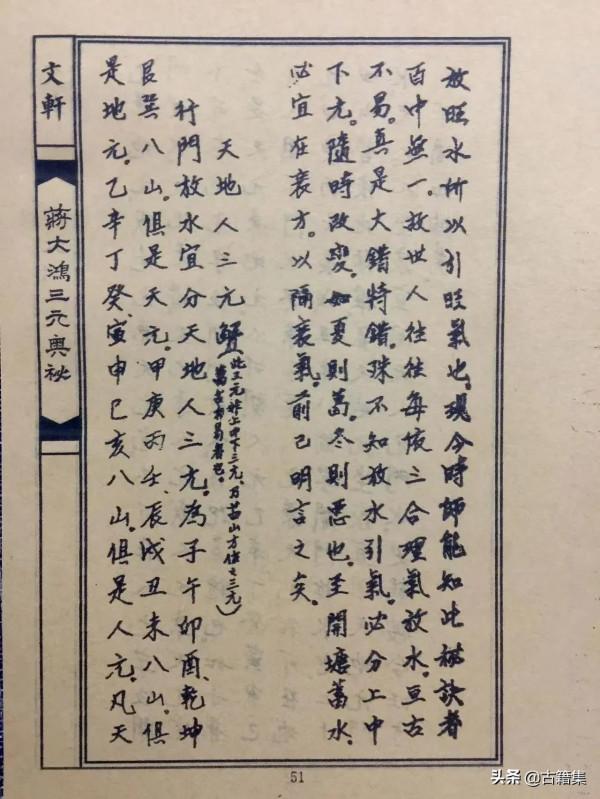 放旺水所以引旺氣也。現今時師能知此秘訣者
百中無一。故世人往往每依三合理氣放水。亘古
不易。真是大錯特錯。殊不知放水引氣。必分上中
下元。隨時改變。如夏則葛。冬則裘也。至開塘蓄水。
必宜在衰方。以隔衰氣。前已明言之矣。
天地人三元解(此三元非上中下三元、乃山方位之三元)
萬古不易者也。
行門放水宜分天地人三元。為子午卯酉、乾坤
艮巽八山。俱是天元。甲庚丙壬、辰戌丑未八山。俱
是地元。乙辛丁癸、寅申巳亥八山。俱是人元。凡天
文軒
蔣大鴻三元奧秘
51
头条 @古籍集